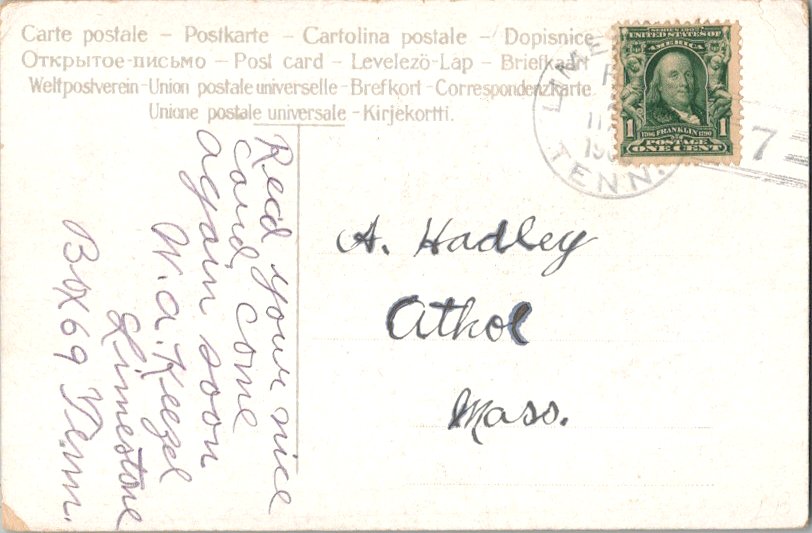 Carte postale – Postkarte – Cartolina postale – Dopisnice
Открытое-письмо – Post card – Levelezö-Lap – Briefkaart
Weltpostverein-Union postale universelle-Brefkort-Correspondenzkarte
Unione postale universale – Kirjekortti.
SERIES 1902
UNITED STATES OF
AMERICA
1706 FRANKLIN 1790
1 POSTAGE 1
ONE CENT
TENN.
7
A. Hadley
Athol
Mass.
Recd your nice
card, come
again soon
W. A. Keezel
Limestone
Box 69 Tenn.